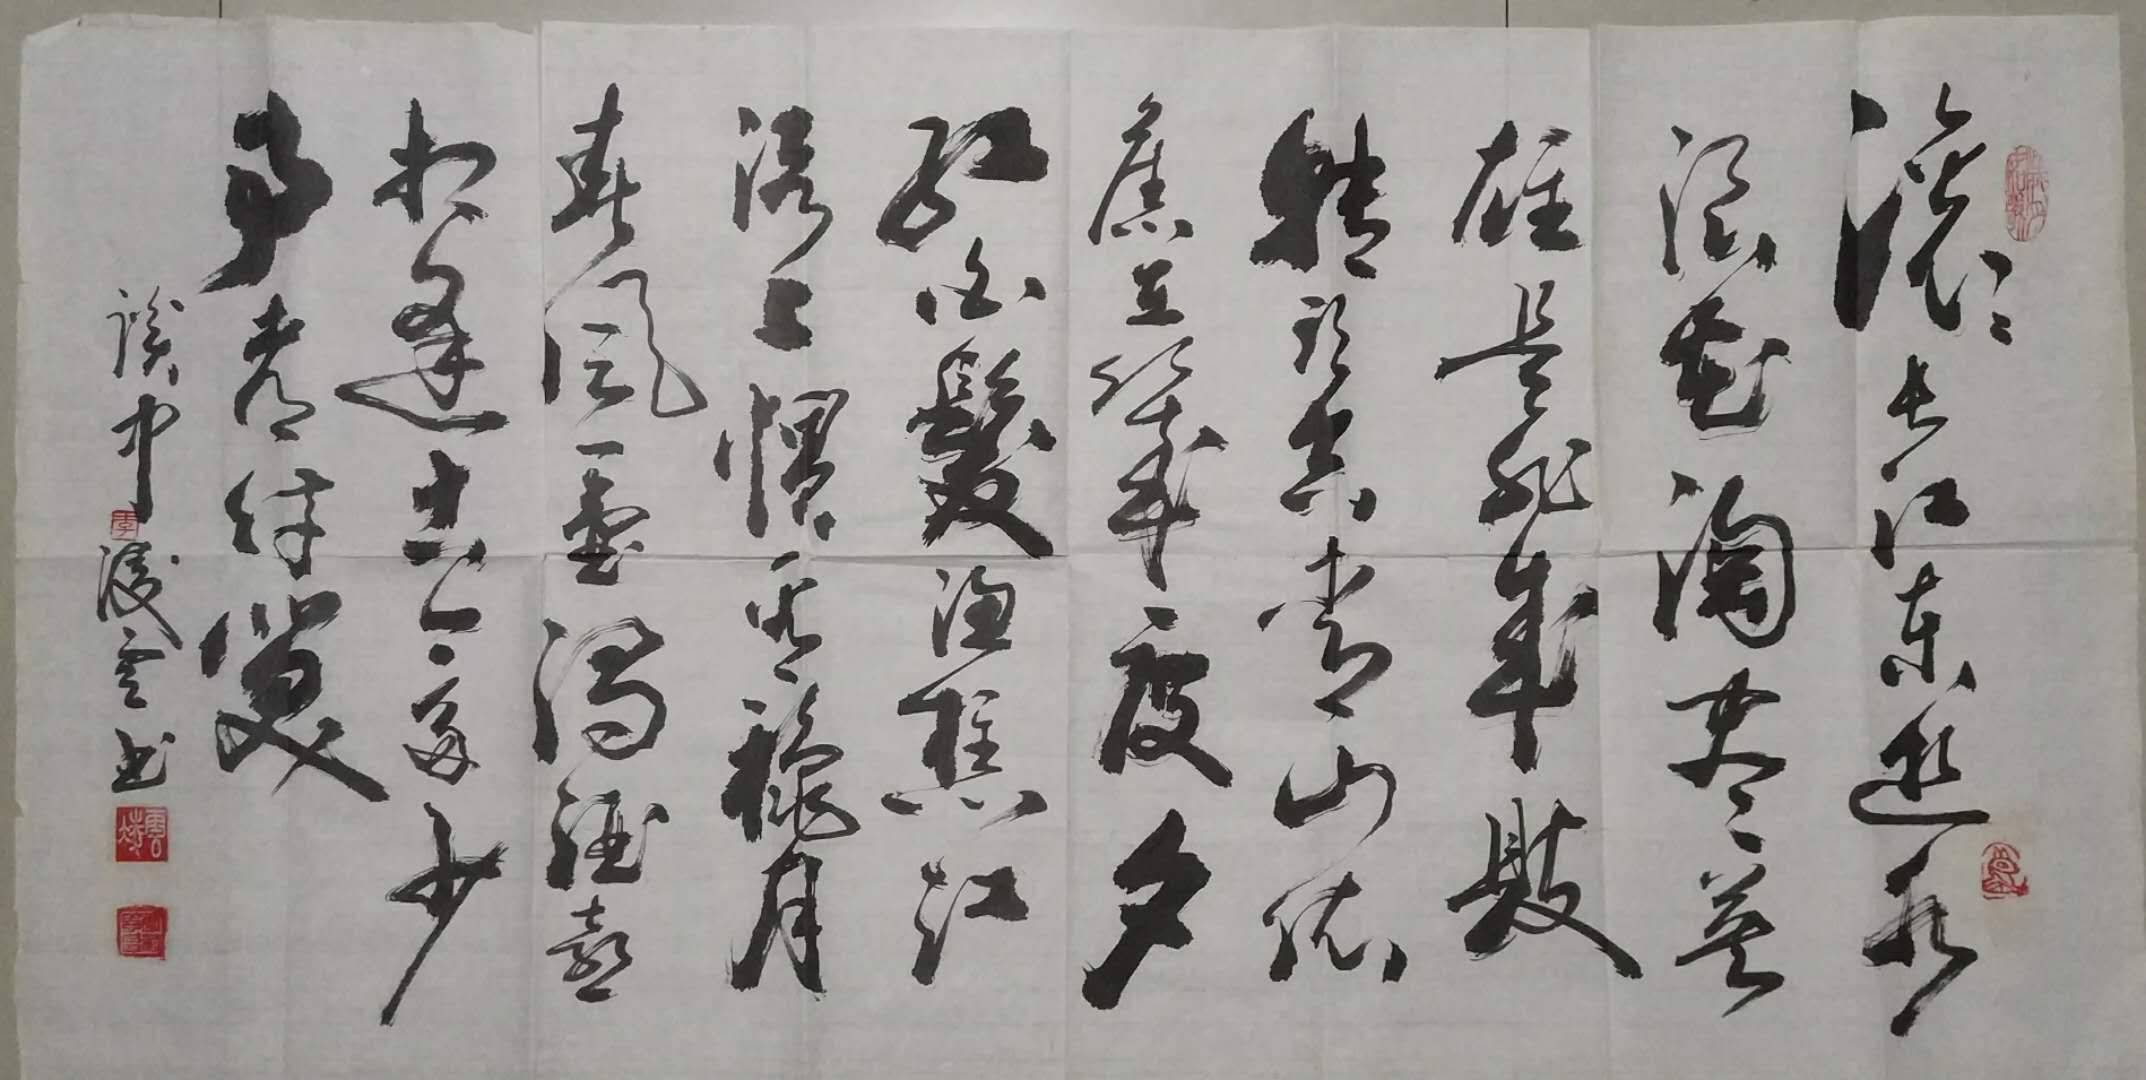 滚〻长江东逝水
浪花淘尽英
雄是非成败
转头空青山依
舊在幾度夕
红白髮渔樵江
渚上惯看穐月
春风一壶濁酒喜
相逢古今多少
事都付笑
谈中 淩云书